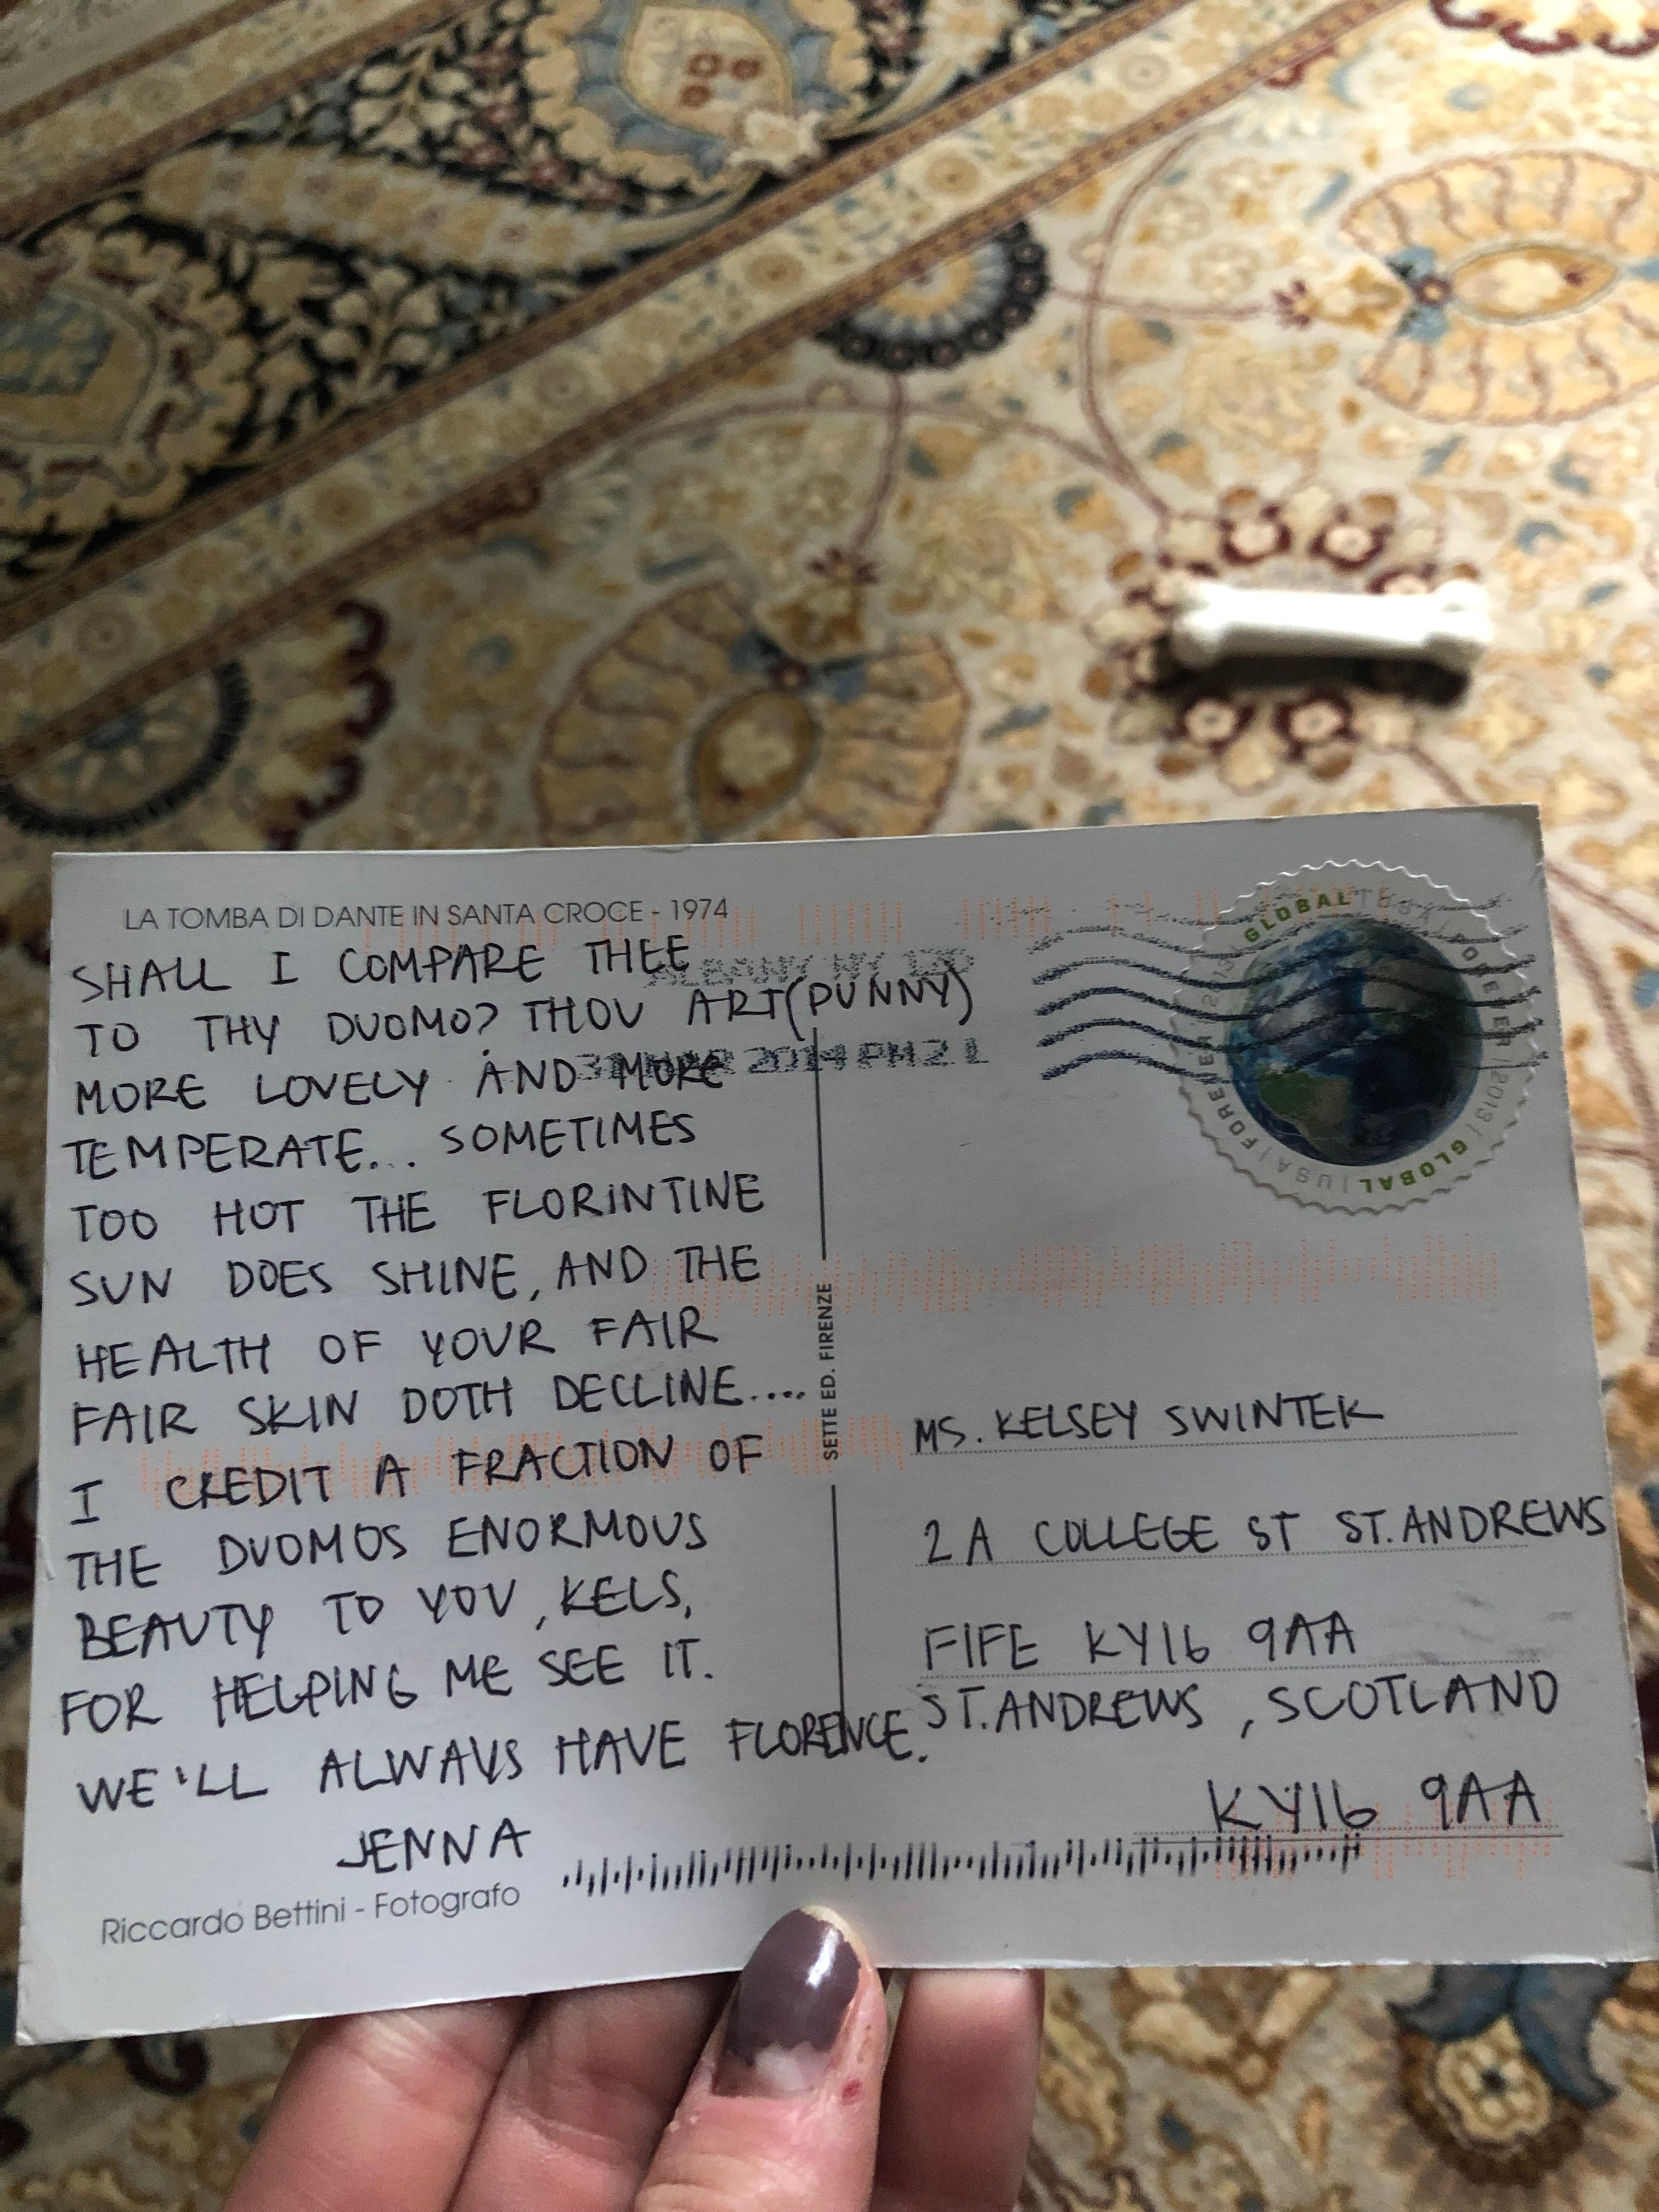 LA TOMBA DI DANTE IN SANTA CROCE - 1974
SHALL I COMPARE THEE
TO THY DUOMO? THOU ART (PUNNY)
MORE LOVELY AND MORE
TEMPERATE... SOMETIMES
TOO HOT THE FLORINTINE
SUN DOES SHINE, AND THE
HEALTH OF YOUR FAIR
FAIR SKIN DOTH DECLINE....
I CREDIT A FRACTION OF
THE DUOMOS ENORMOUS
BEAUTY TO YOU, KELS,
FOR HELPING ME SEE IT.
WE'LL ALWAYS HAVE FLORENCE.
JENNA
Riccardo Bettini - Fotografo
SETTE ED. FIRENZE
ALBANY NY
31 MAR 2014 PM 2 L
GLOBAL USA FOREVER 2013 GLOBAL USA FOREVER 2013
MS. KELSEY SWINTEK
2A COLLEGE ST ST. ANDREWS
FIFE KY16 9AA
ST. ANDREWS, SCOTLAND
KY16 9AA